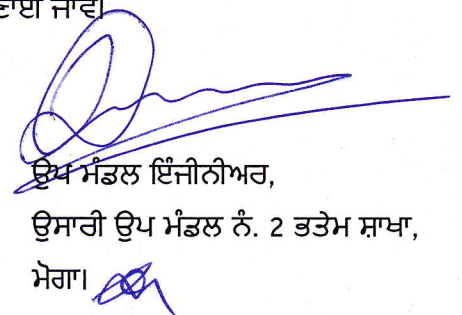 ਜਾਵੇ।
ਉਪ ਮੰਡਲ ਇੰਜੀਨੀਅਰ,
ਉਸਾਰੀ ਉਪ ਮੰਡਲ ਨੰ. 2 ਭਤੇਮ ਸ਼ਾਖਾ,
ਮੋਗਾ।